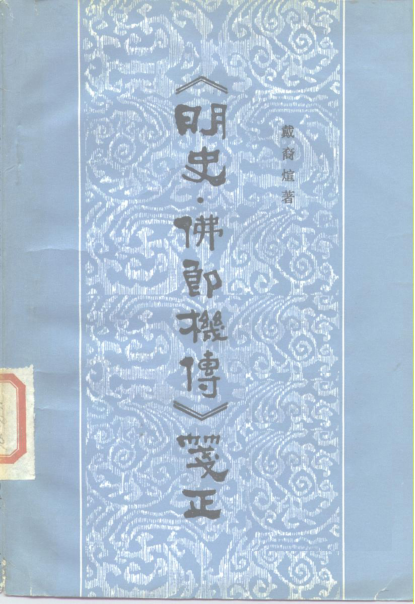 戴裔煊著
《明史·佛郎机傳》箋正